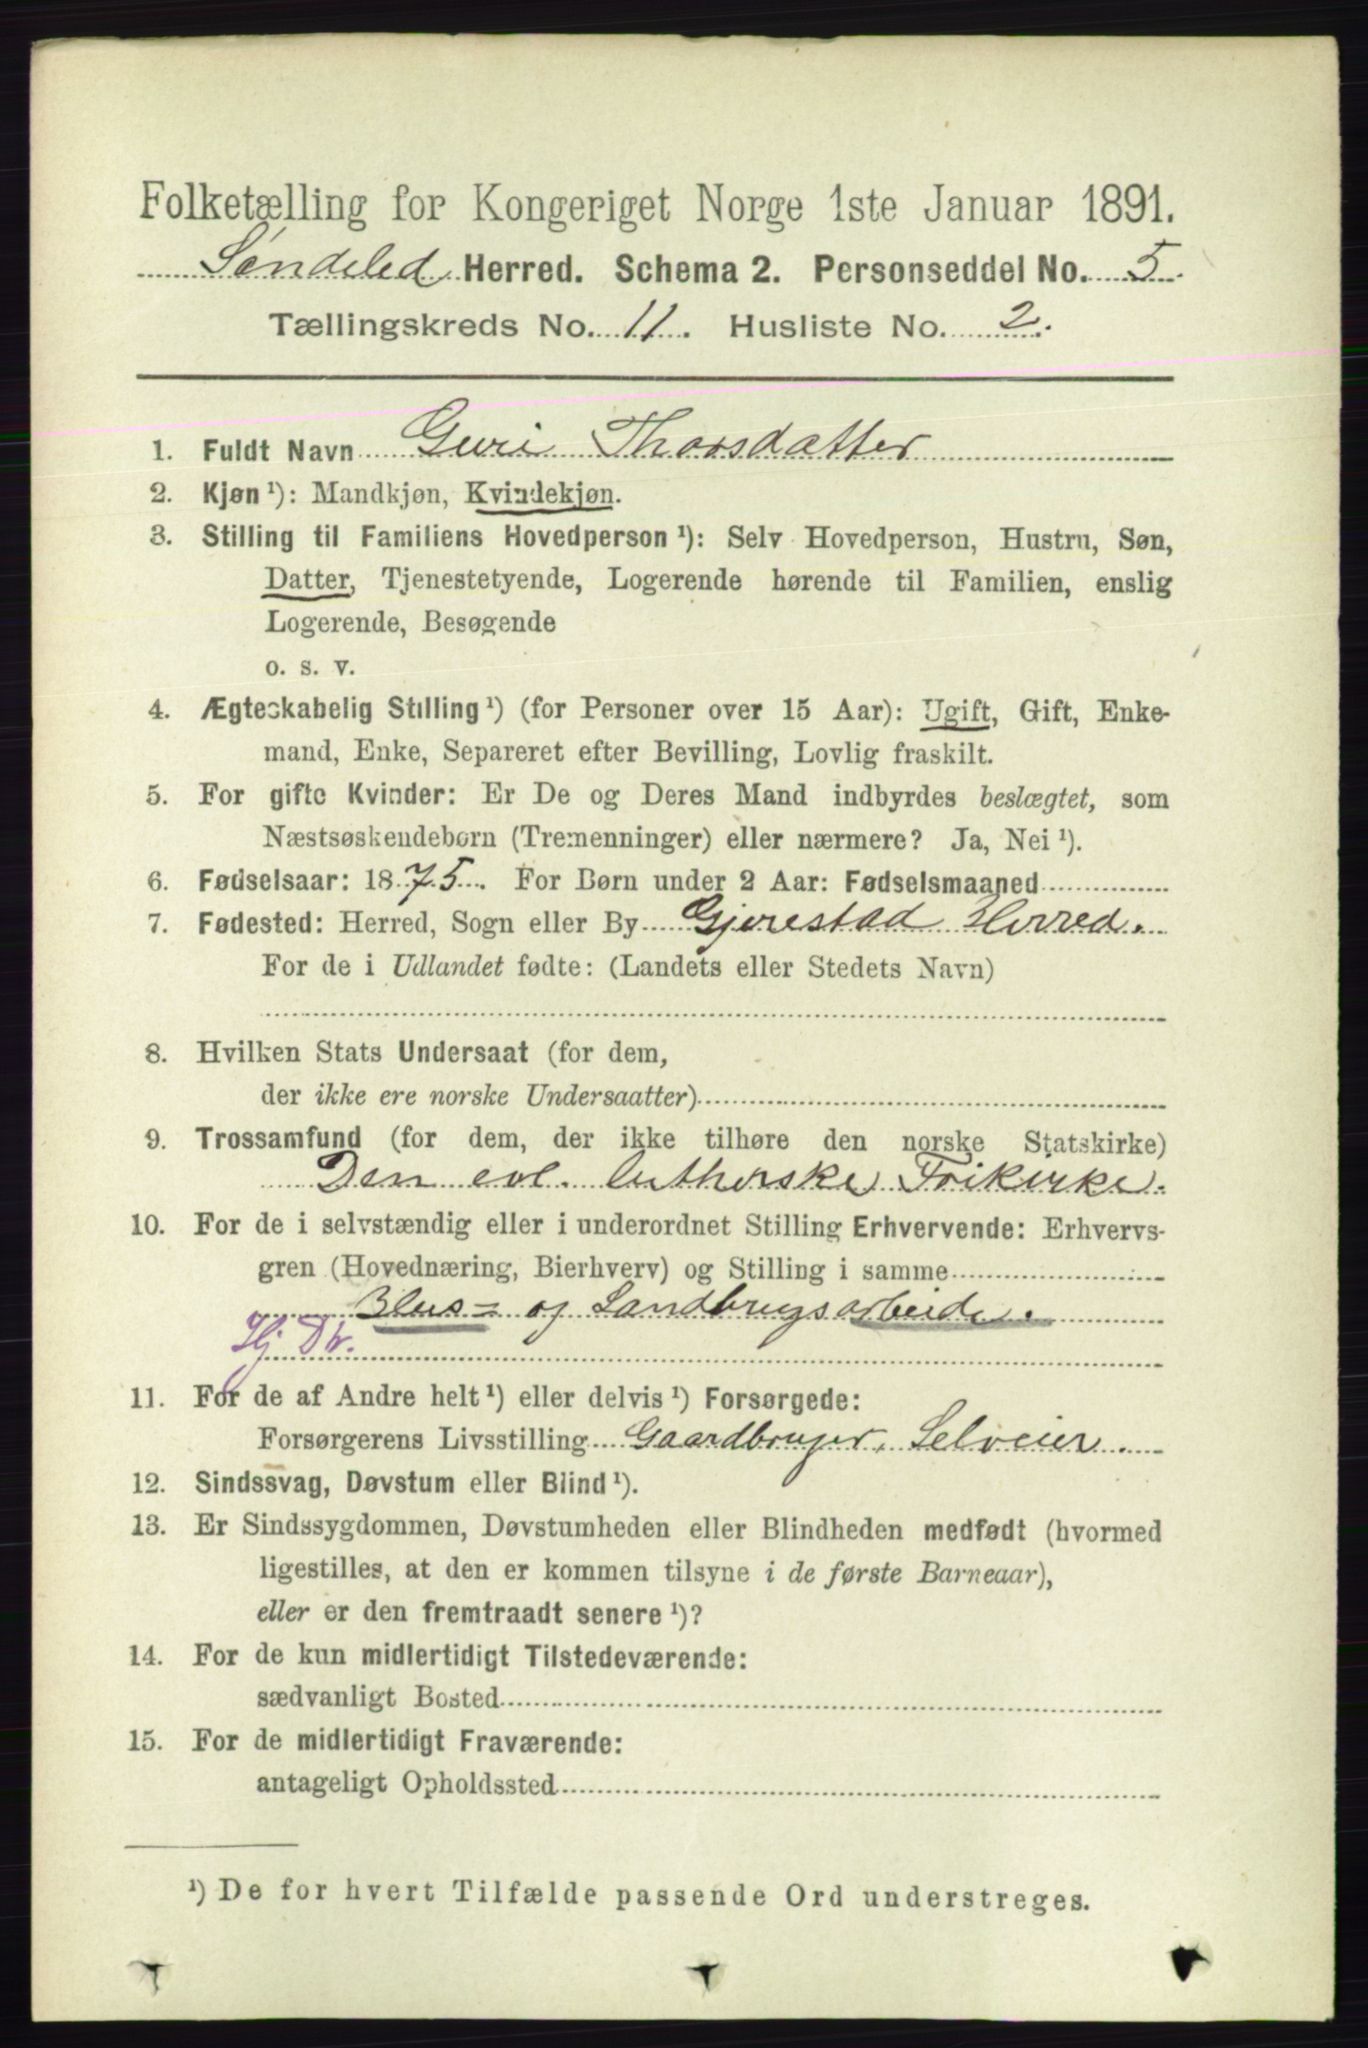 Folketælling for Kongeriget Norge 1ste Januar 1891.
Søndeled Herred. Schema 2. Personseddel No. 5.
Tællingskreds No. 11. Husliste No. 2.
1. Fuldt Navn Guri Thorsdatter
2. Kjøn ¹): Mandkjøn, Kvindekjøn.
3. Stilling til Familiens Hovedperson ¹): Selv Hovedperson, Hustru, Søn,
Datter, Tjenestetyende, Logerende hørende til Familien, enslig
Logerende, Besøgende
o. s. v.
4. Ægteskabelig Stilling ¹) (for Personer over 15 Aar): Ugift, Gift, Enke-
mand, Enke, Separeret efter Bevilling, Lovlig fraskilt.
5. For gifte Kvinder: Er De og Deres Mand indbyrdes beslægtet, som
Næstsøskendebørn (Tremenninger) eller nærmere? Ja, Nei ¹).
6. Fødselsaar: 1875. For Børn under 2 Aar: Fødselsmaaned
7. Fødested: Herred, Sogn eller By Gjerestad Herred.
For de i Udlandet fødte: (Landets eller Stedets Navn)
8. Hvilken Stats Undersaat (for dem,
der ikke ere norske Undersaatter)
9. Trossamfund (for dem, der ikke tilhøre den norske Statskirke)
Den evl. lutherske Frikirke.
10. For de i selvstændig eller i underordnet Stilling Erhvervende: Erhvervs-
gren (Hovednæring, Bierhverv) og Stilling i samme
og Landbrugsarbeide.
Hj Dtr.
11. For de af Andre helt ¹) eller delvis ¹) Forsørgede:
Forsørgerens Livsstilling Gaardbruger, Selveier.
12. Sindssvag, Døvstum eller Blind ¹).
13. Er Sindssygdommen, Døvstumheden eller Blindheden medfødt (hvormed
ligestilles, at den er kommen tilsyne i de første Barneaar),
eller er den fremtraadt senere ¹)?
14. For de kun midlertidigt Tilstedeværende:
sædvanligt Bosted
15. For de midlertidigt Fraværende:
antageligt Opholdssted
¹) De for hvert Tilfælde passende Ord understreges.